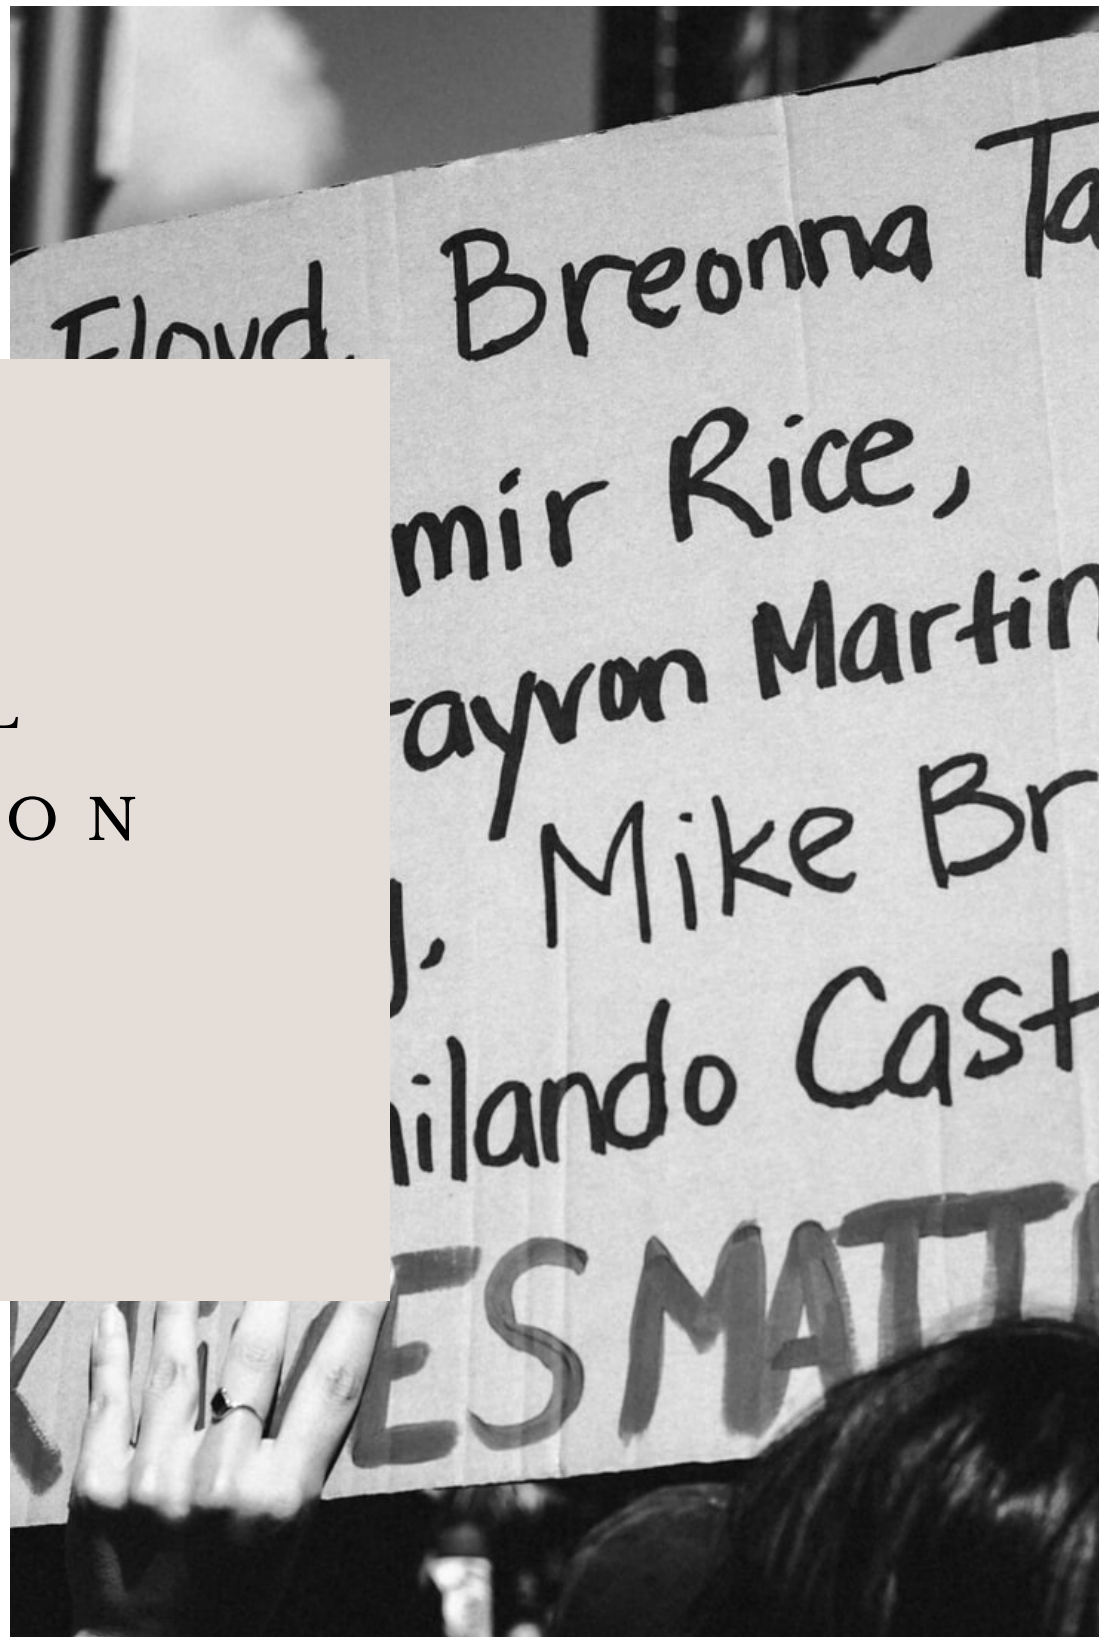 Floyd, Breonna Ta
mir Rice,
rayvon Martin
L
ON
y, Mike Br
hilando Cast
ES MATT